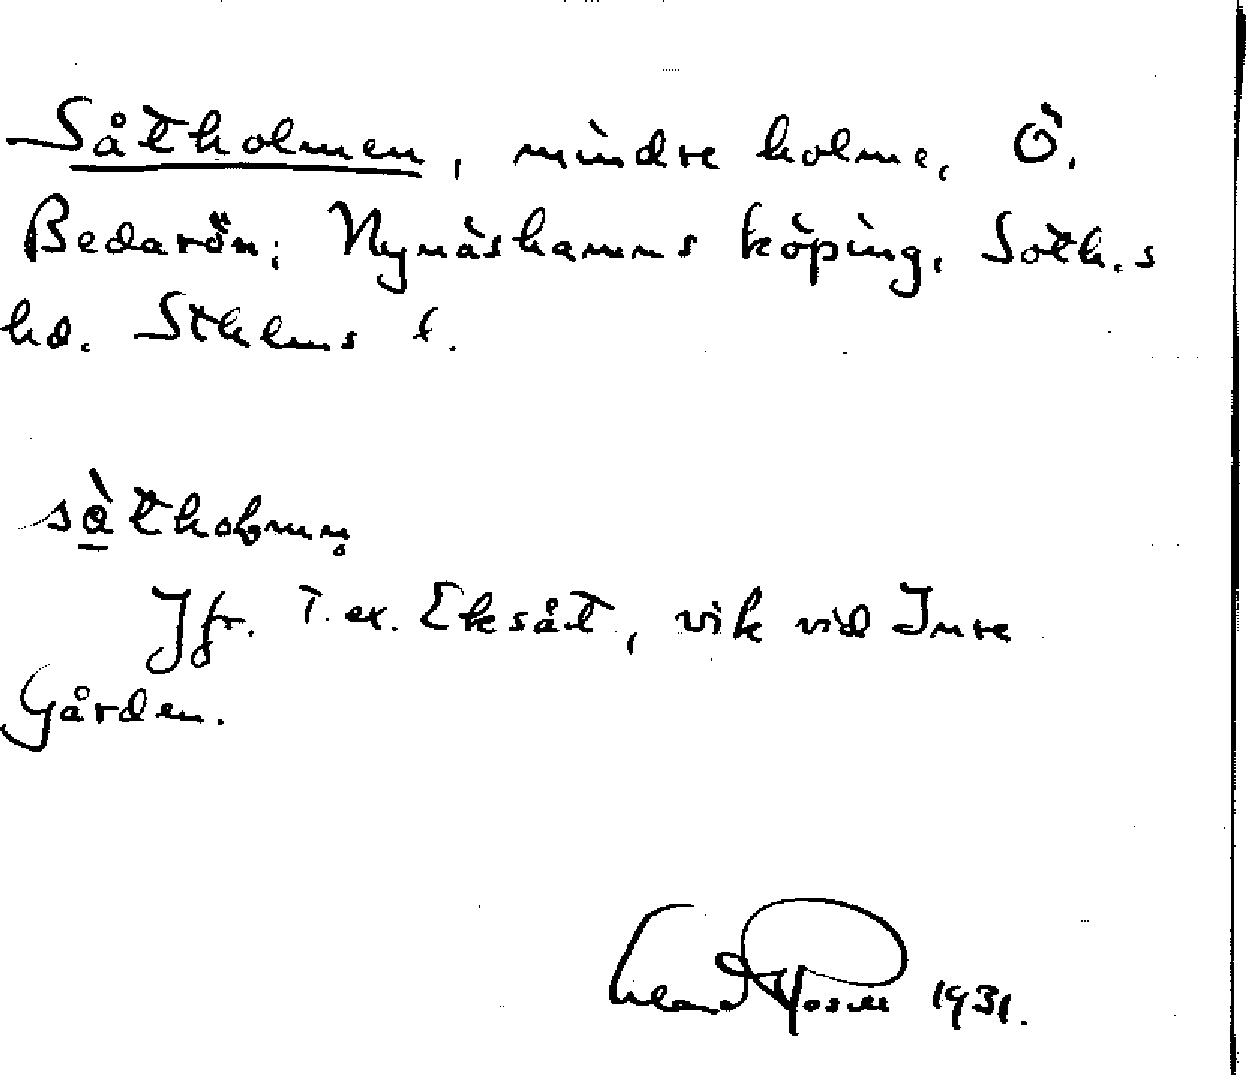 Såtholmen, mindre holme, Ö.
Bedarön; Nynäshamns köping, Soth.s
hd. Sthlms l.
såtholmn̥
Jfr. t.ex. Eksåt, vik vid Inre
Gården.
1931.